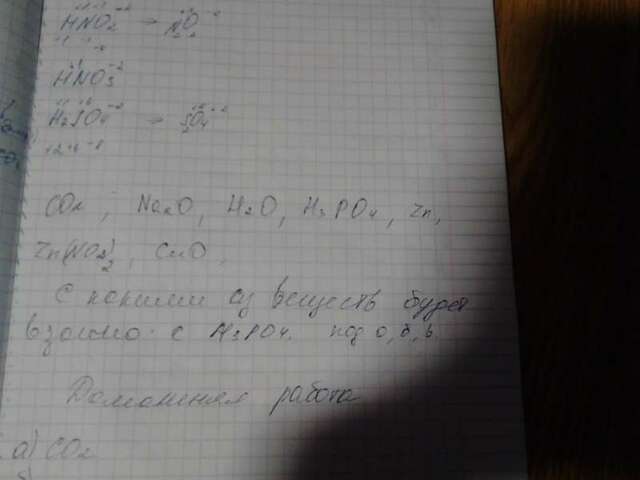 HNO₂ → NO
HNO₃
H₂SO₄ → SO₄
CO₂, Na₂O, H₂O, H₃PO₄, Zn,
Zn(NO₂)₂, CuO,
С какими из веществ будет
взаимо. с H₃PO₄. под а, б, в.
Домашняя работа
а) CO₂